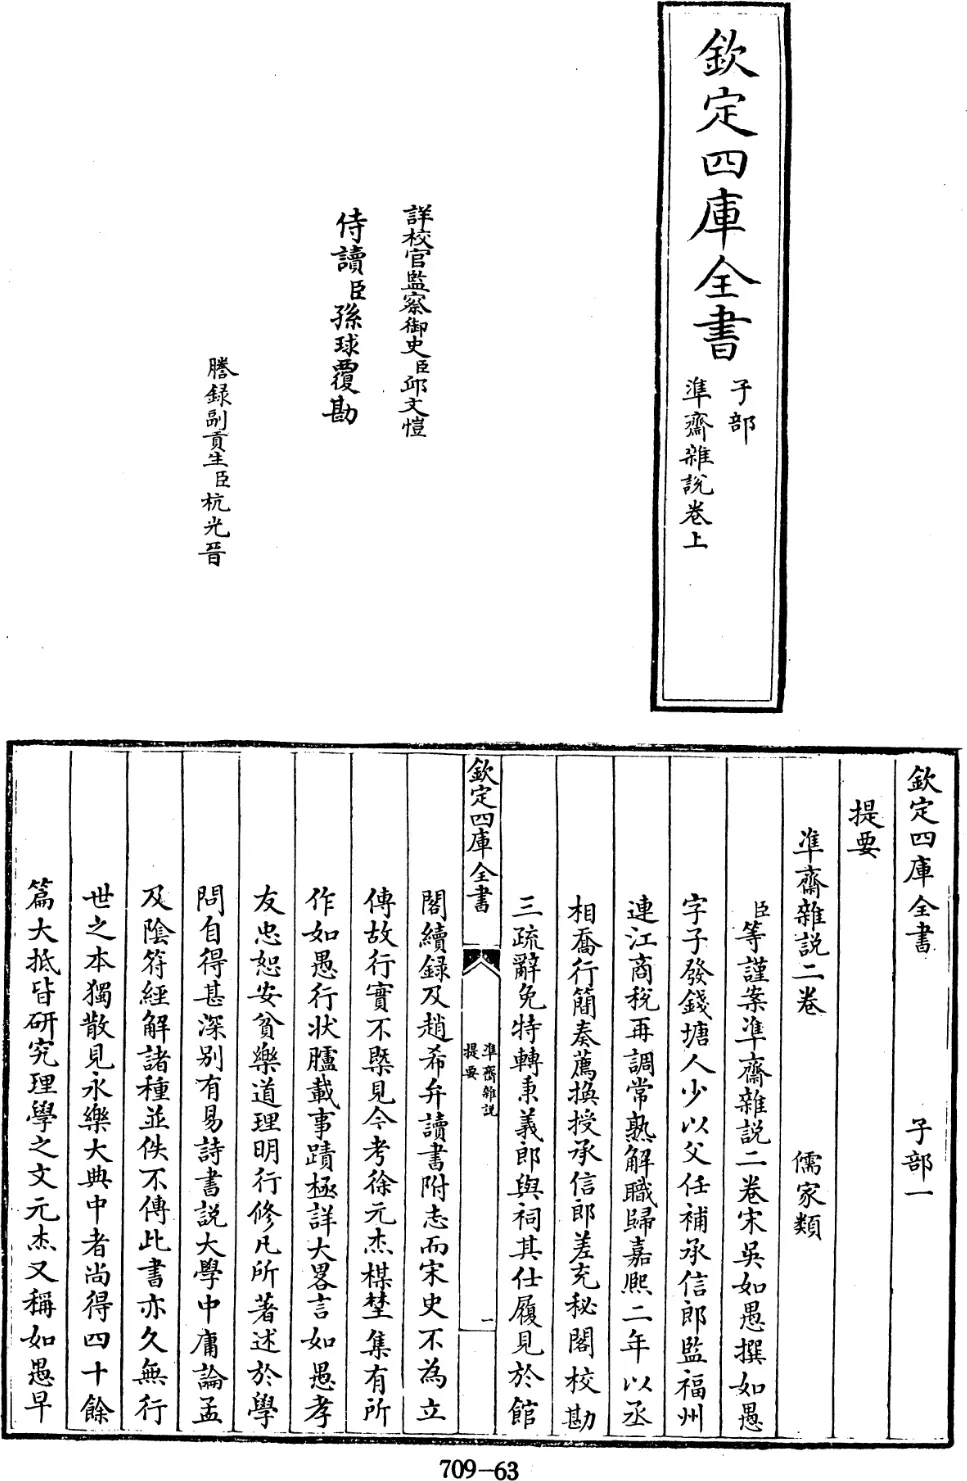 欽定四庫全書
子部
準齋雜説卷上
詳校官監察御史臣邱文愷
侍讀臣孫球覆勘
謄録副貢生臣杭光晉
欽定四庫全書 子部一
提要
準齋雜説二卷 儒家類
臣等謹案準齋雜説二卷宋吳如愚撰如愚
字子發錢塘人少以父任補承信郎監福州
連江商税再調常熟解職歸嘉熙二年以丞
相喬行簡奏薦換授承信郎差充秘閣校勘
三疏辭免特轉秉義郎與祠其仕履見於館
欽定四庫全書
準齋雜説
提要
一
閣續録及趙希弁讀書附志而宋史不為立
傳故行實不槩見今考徐元杰楳埜集有所
作如愚行状臚載事蹟極詳大畧言如愚孝
友忠恕安貧樂道理明行修凡所著述於學
問自得甚深别有易詩書説大學中庸論孟
及陰符經解諸種並佚不傳此書亦久無行
世之本獨散見永樂大典中者尚得四十餘
篇大抵皆研究理學之文元杰又稱如愚早
709-63